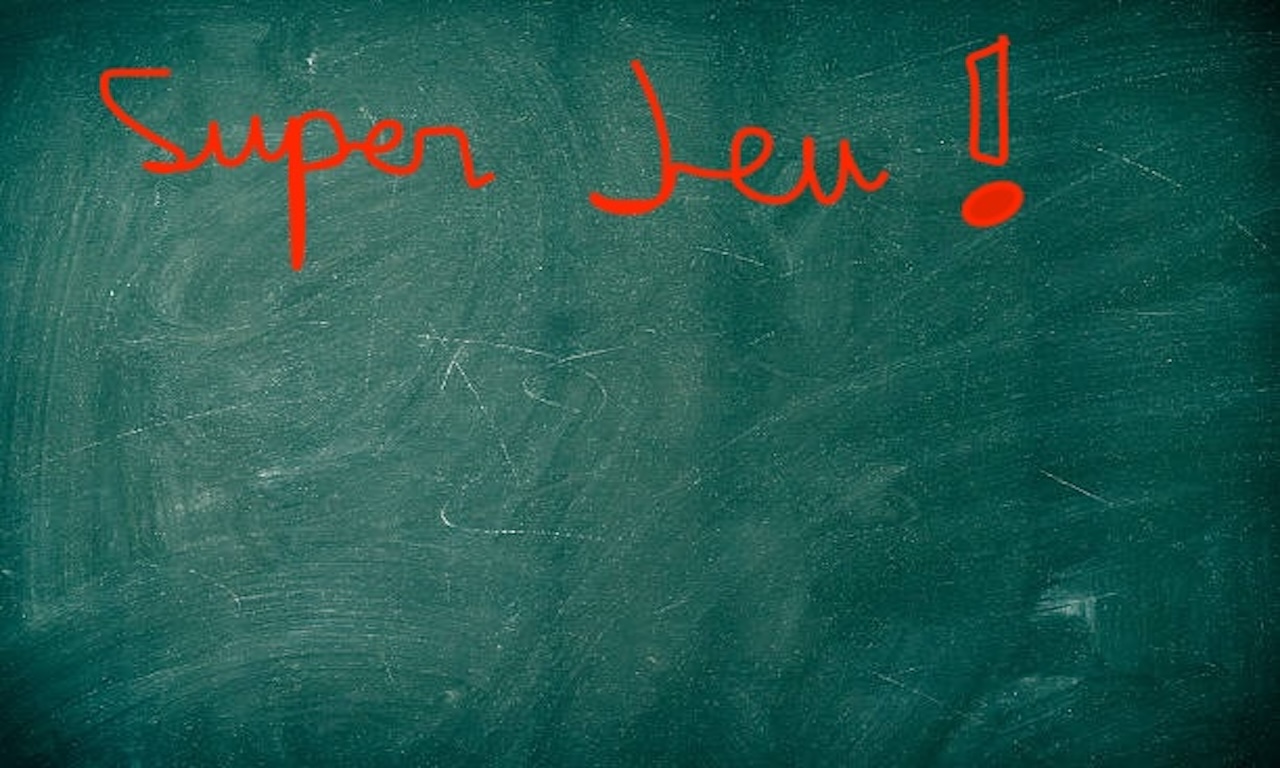 Super Jeu !